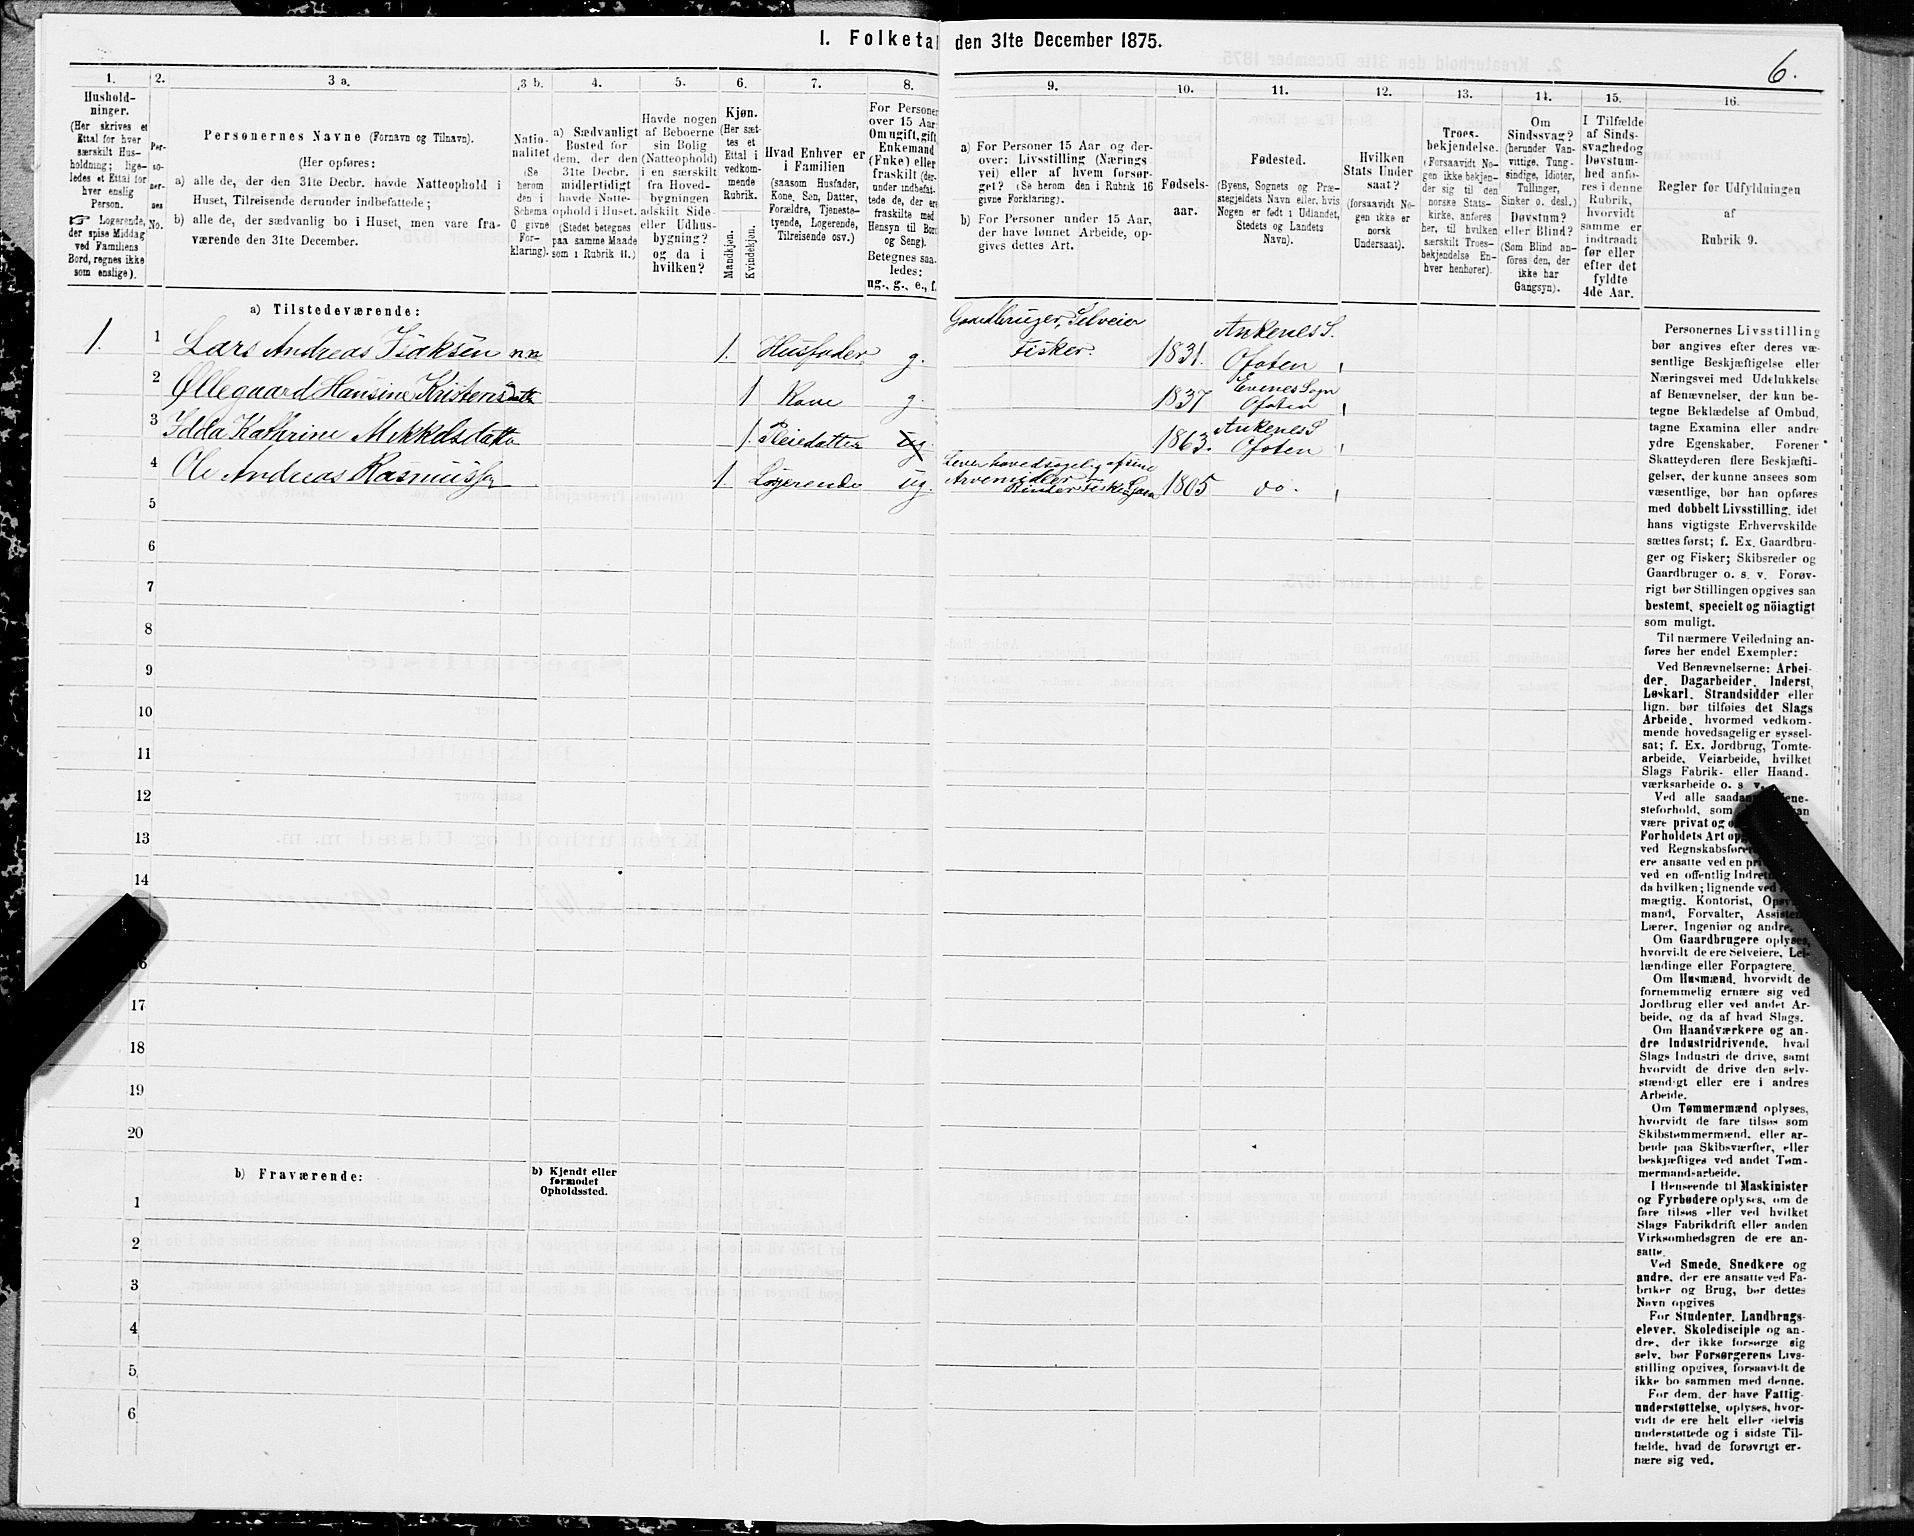 I. Folketal den 31te December 1875.
6.
1.
2.
3 a.
3 b.
4.
5.
6.
7.
8.
9.
10.
11.
12.
13.
14.
15.
16.
Hushold-
ninger.
(Her skrives et
Ettal for hver
særskilt Hus-
holdning; lige-
ledes et Ettal for
hver enslig
Person.
☞ Logerende,
der spise Middag
ved Familiens
Bord, regnes ikke
som enslige).
Per-
so-
ner-
nes
No.
Personernes Navne (Fornavn og Tilnavn).
(Her opføres:
a) alle de, der den 31te Decbr. havde Natteophold i
Huset, Tilreisende derunder indbefattede;
b) alle de, der sædvanlig bo i Huset, men vare fra-
værende den 31te December.
Natio-
nalitet
(Se
herom
den i
Schema
6 givne
For-
klaring).
a) Sædvanligt
Bosted for
dem, der den
31te Decbr.
midlertidigt
havde Natte-
ophold i Huset.
(Stedet betegnes
paa samme Maade
som i Rubrik 11.)
Havde nogen
af Beboerne
sin Bolig
(Natteophold)
i en særskilt
fra Hoved-
bygningen
adskilt Side-
eller Udhus-
bygning?
og da i
hvilken?
Kjøn.
(Her sæt-
tes et
Ettal i
vedkom-
mende
Rubrik.
Mandkjøn.
Kvindekjøn.
Hvad Enhver er
i Familien
(saasom Husfader,
Kone, Søn, Datter,
Forældre, Tjeneste-
tyende, Logerende,
Tilreisende osv.)
For Personer
over 15 Aar:
Om ugift, gift,
Enkemand
(Enke) eller
fraskilt (der-
under indbefat-
tede de, der ere
fraskilte med
Hensyn til Bord
og Seng).
Betegnes saa-
ledes:
ug., g., e., f.
a) For Personer 15 Aar og der-
over: Livsstilling (Nærings-
vei) eller af hvem forsør-
get? (Se herom den i Rubrik 16
givne Forklaring).
b) For Personer under 15 Aar,
der have lønnet Arbeide, op-
gives dettes Art.
Fødsels-
aar.
Fødested.
(Byens, Sognets og Præ-
stegjeldets Navn eller, hvis
Nogen er født i Udlandet,
Stedets og Landets
Navn).
Hvilken
Stats Under-
saat?
(forsaavidt No-
gen ikke er
norsk
Undersaat).
Troes-
bekjendelse.
(Forsaavidt No-
gen ikke bekjen-
der sig til den
norske Stats-
kirke, anføres
her, til hvilken
særskilt Troes-
bekjendelse En-
hver henhører).
Om
Sindssvag?
(herunder Van-
vittige, Tung-
sindige, Idioter,
Tullinger,
Sinker o. desl.)
Døvstum?
eller Blind?
(Som Blind an-
føres den, der
ikke har
Gangsyn).
I Tilfælde
af Sinds-
svaghed og
Døvstum-
hed anfø-
res i denne
Rubrik,
hvorvidt
samme er
indtraadt
før eller
efter det
fyldte
4de Aar.
Regler for Udfyldningen
af
Rubrik 9.
a) Tilstedeværende:
1. 1 Lars Andreas Isaksen n.n. 1. Husfader g. Gaardbruger, Selveier Fisker. 1831. Ankenes S. Ofoten
2 Øllegaard Hansine Kristensdatter 1 Kone g. 1837 Evenes Sogn Ofoten
3 Idda Kathrine Mikkelsdatter 1. Pleiedatter ug. 1863. Ankenes S Ofoten
4 Ole Andreas Rasmussen 1 Logerende ug. Lever hovedsagelig af sine Arvemidler 1805 do.
5
6
7
8
9
10
11
12
13
14
16
17
18
19
20
b) Fraværende:
b) Kjendt eller
formodet
Opholdssted.
1
2
3
4
5
6
Personernes Livsstilling
bør angives efter deres væ-
sentlige Beskjæftigelse eller
Næringsvei med Udelukkelse
af Benævnelser, der kun be-
tegne Beklædelse af Ombud,
tagne Examina eller andre
ydre Egenskaber. Forener
Skatteyderen flere Beskjæfti-
gelser, der kunne ansees som
væsentlige, bør han opføres
med dobbelt Livsstilling, idet
hans vigtigste Erhvervskilde
sættes først; f. Ex. Gaardbru-
ger og Fisker; Skibsreder og
Gaardbruger o. s. v. Forøv-
rigt bør Stillingen opgives saa
bestemt, specielt og nöiagtigt
som muligt.
Til nærmere Veiledning an-
føres her endel Exempler:
Ved Benævnelserne: Arbei-
der, Dagarbeider, Inderst,
Løskarl, Strandsidder eller
lign. bør tilføies det Slags
Arbeide, hvormed vedkom-
mende hovedsagelig er syssel-
sat; f. Ex. Jordbrug, Tomte-
arbeide, Veiarbeide, hvilket
Slags Fabrik- eller Haand-
værksarbeide o. s. v.
Ved alle
steforhold, som
være privat og
Forholdets Art
ved
ere ansatte ved en
ved en offentlig
da hvilken; lignende ved
mægtig, Kontorist,
mand, Forvalter,
Lærer, Ingeniør og andre.
Om Gaardbrugere oplyses,
hvorvidt de ere Selveiere, Lei-
lændinge eller Forpagtere.
Om Husmænd, hvorvidt de
fornemmelig ernære sig ved
Jordbrug eller ved andet Ar-
beide, og da af hvad Slags.
Om Haandværkere og an-
dre Industridrivende, hvad
Slags Industri de drive, samt
hvorvidt de drive den selv-
stændigt eller ere i andres
Arbeide.
Om Tømmermænd oplyses,
hvorvidt de fare tilsøs som
Skibstømmermænd, eller ar-
beide paa Skibsværfter, eller
beskjæftiges ved andet Tøm-
mermand-arbeide.
I Henseende til Maskinister
og Fyrbødere oplyses, om de
fare tilsøs eller ved hvilket
Slags Fabrikdrift eller anden
Virksomhedsgren de ere an-
satte.
Ved Smede, Snedkere og
andre, der ere ansatte ved Fa-
briker og Brug, bør dettes
Navn opgives
For Studenter, Landbrugs-
elever, Skoledisciple og an-
dre, der ikke forsørge sig
selv, bør Forsørgerens Livs-
stilling opgives, forsaavidt de
ikke bo sammen med denne.
For dem, der have Fattig-
understøttelse, oplyses, hvor-
vidt de ere helt eller delvis
understøttede og i sidste Til-
fælde, hvad de forøvrigt er-
nære sig ved.